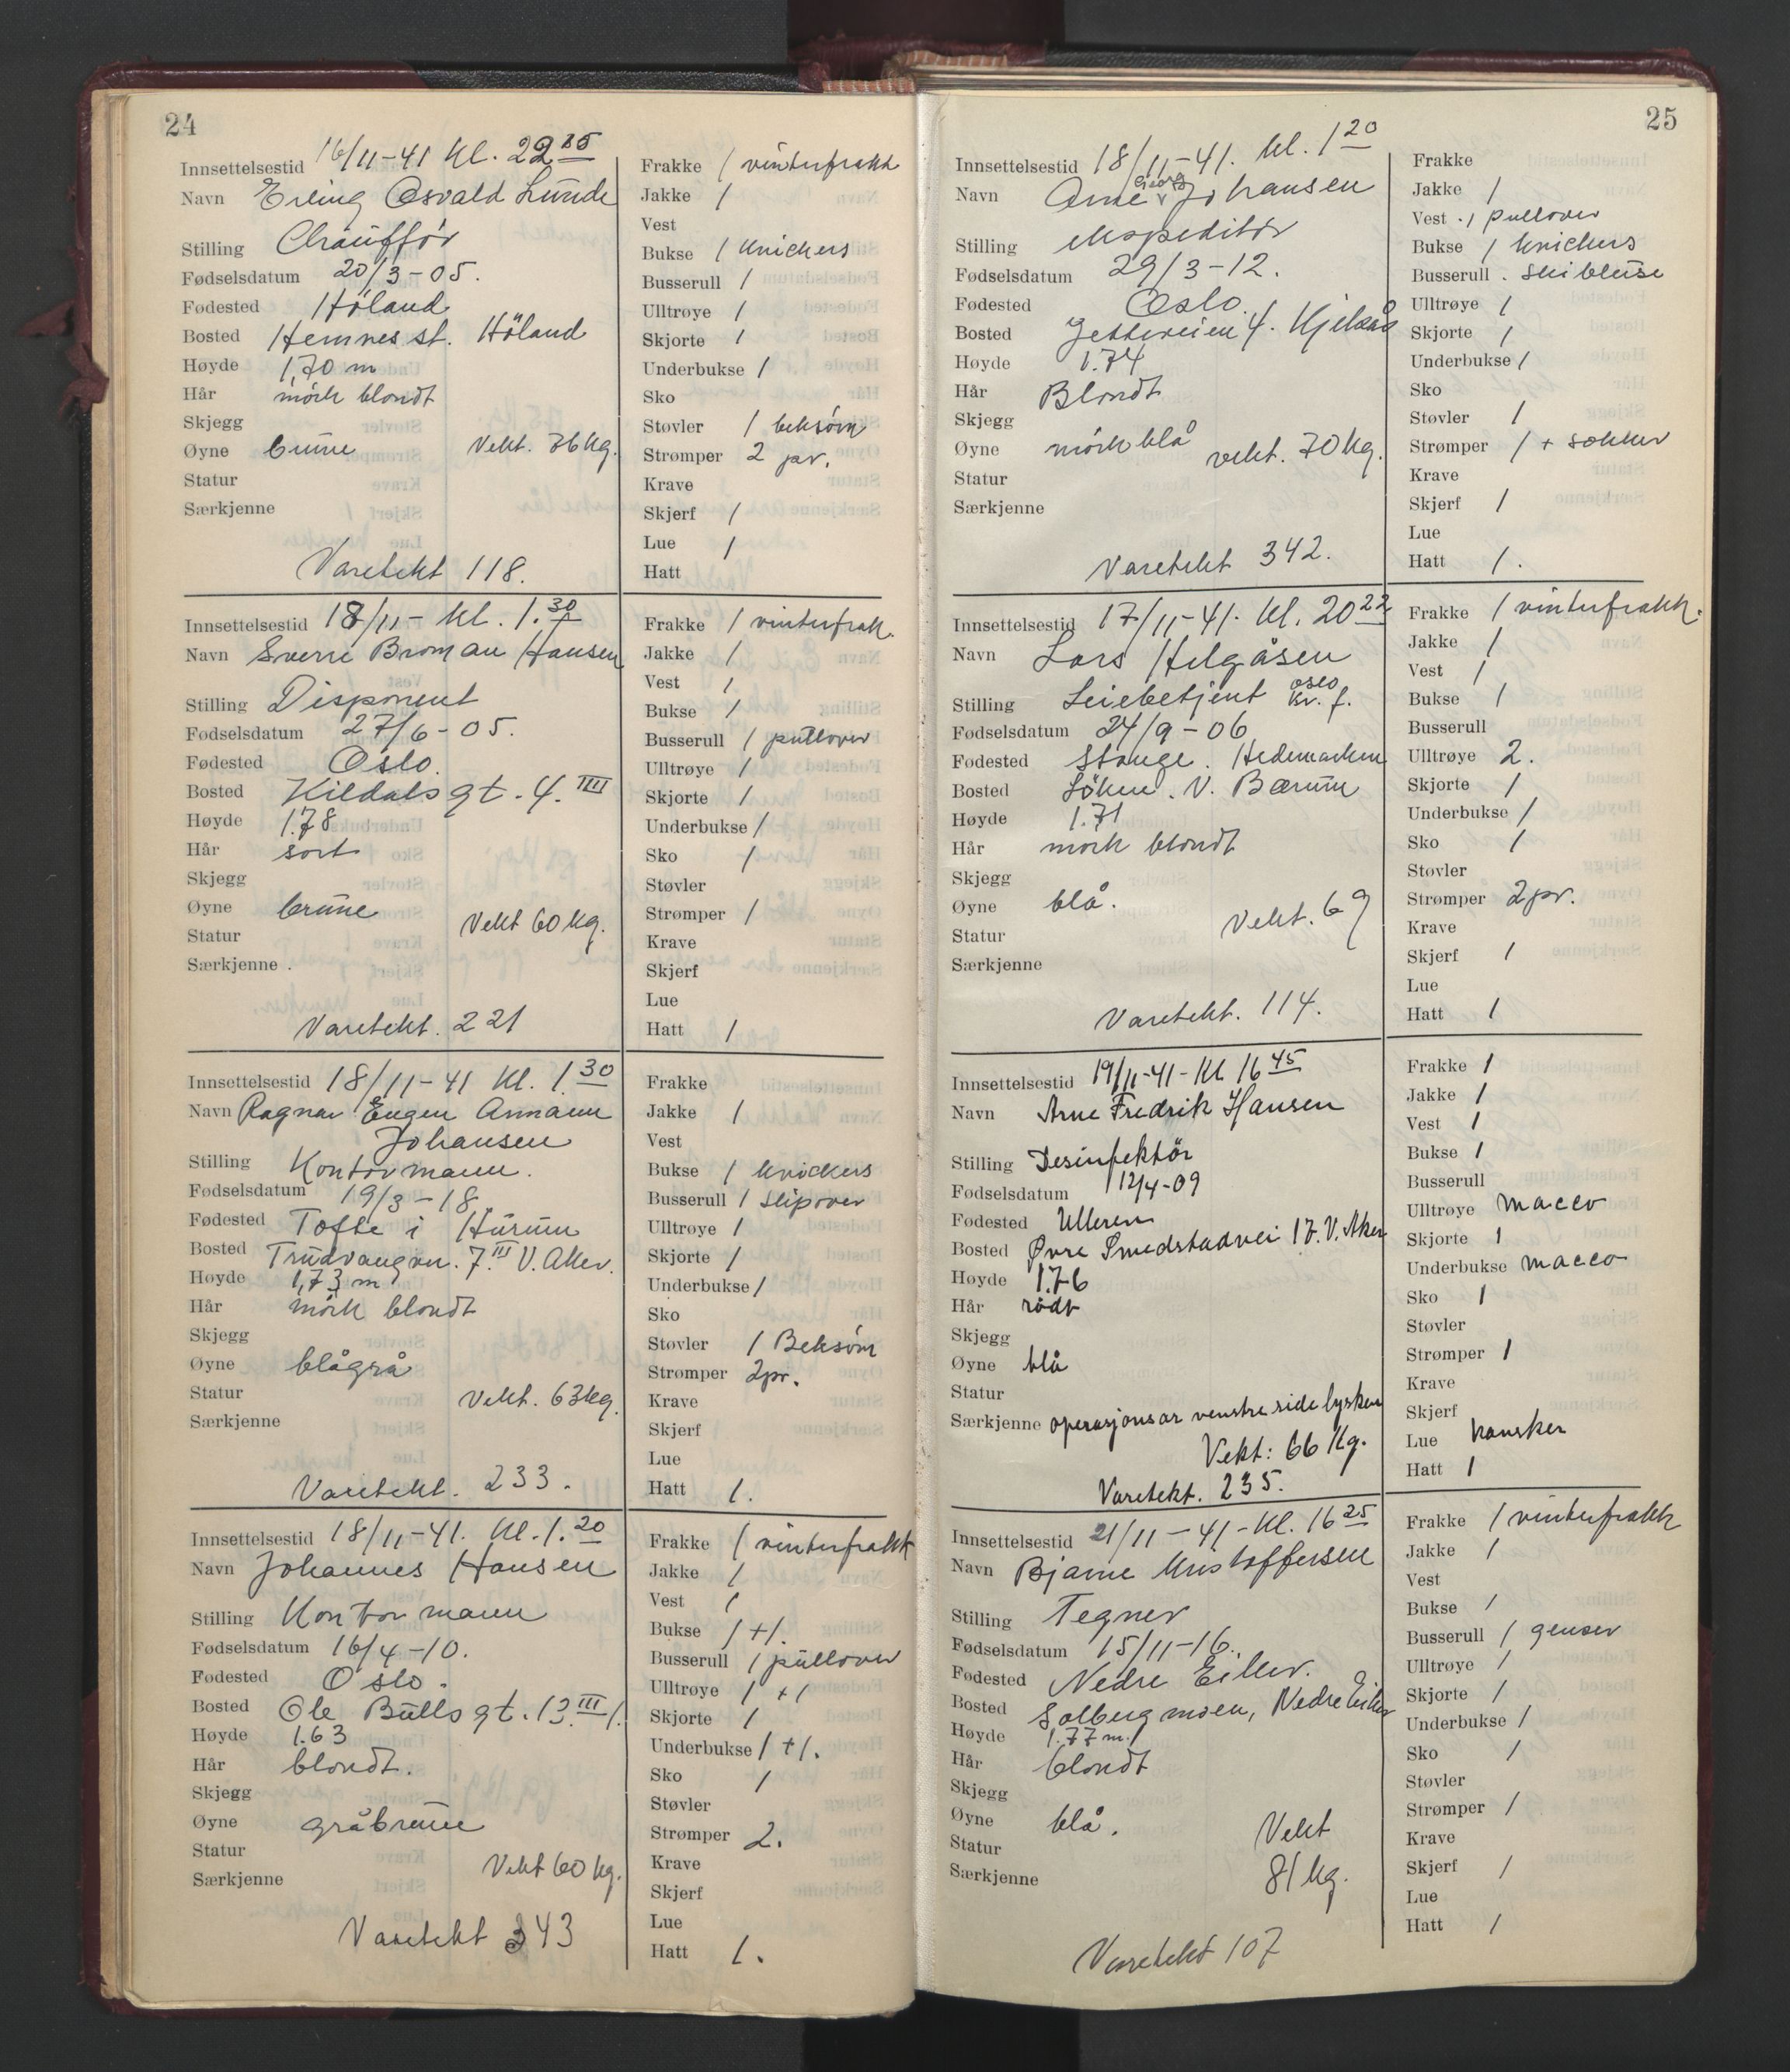 24
Innsettelsestid 16/11-41 Kl. 22 25
Navn Erling Osvald Lunde
Stilling Chauffør
Fødselsdatum 20/3-05.
Fødested Höland
Bosted Hemnes st. Höland
Høyde 1,70 m
Hår mörk blondt
Skjegg
Øyne brune Vekt. 76 kg.
Statur
Særkjenne
Varetekt 118.
Frakke 1 vinterfrakk
Jakke 1
Vest
Bukse 1 knickers
Busserull 1
Ulltrøye 1
Skjorte 1
Underbukse 1
Sko
Støvler 1 beksöm
Strømper 2 par.
Krave
Skjerf 1
Lue 1
Hatt
Innsettelsestid 18/11- Kl. 1.30
Navn Sverre Broman Hansen
Stilling Disponent
Fødselsdatum 27/6-05.
Fødested Oslo.
Bosted Kildals gt. 4. IIII
Høyde 1.78
Hår sort
Skjegg
Øyne brune Vekt 60 kg.
Statur
Særkjenne .
Varetekt. 221
Frakke 1 vinterfrak.
Jakke 1
Vest 1
Bukse 1
Busserull 1 pullover
Ulltrøye 1
Skjorte 1
Underbukse 1
Sko 1
Støvler
Strømper 1
Krave
Skjerf
Lue
Hatt 1
Innsettelsestid 18/11-41 Kl. 1.30
Navn Ragnar Eugen Armann
Johansen
Stilling Kontormann.
Fødselsdatum 19/3-18.
Fødested Tofte i Hurum
Bosted Trudvangvn. 7. III V. Aker.
Høyde 1,73 m
Hår mörk blondt
Skjegg
Øyne blågrå
Statur Vekt. 63 kg.
Særkjenne
Varetekt. 233.
Frakke
Jakke 1
Vest
Bukse 1 knickers
Busserull 1 slipover
Ulltrøye 1
Skjorte 1
Underbukse 1
Sko
Støvler 1 Beksöm
Strømper 2 pr.
Krave
Skjerf
Lue
Hatt 1.
Innsettelsestid 18/11-41. Kl. 1.20
Navn Johannes Hansen
Stilling Kontormann
Fødselsdatum 16/4-10.
Fødested Oslo.
Bosted Ole Bulls gt. 13. III /.
Høyde 1.63
Hår blondt.
Skjegg
Øyne gråbrune
Statur
Særkjenne Vekt 60 kg.
Varetekt 343
Frakke 1 vinterfrakk
Jakke 1
Vest 1
Bukse 1+1.
Busserull 1 pullover
Ulltrøye 1+1
Skjorte 1
Underbukse 1+1.
Sko 1
Støvler
Strømper 2.
Krave
Skjerf
Lue
Hatt 1.
25
Innsettelsestid 18/11-41. kl. 1 20
Georg
Navn Arne Johansen
Stilling ekspeditör
Fødselsdatum 29/3-12.
Fødested Oslo.
Bosted Jetteveien 4. Kjelsås
Høyde 1.74
Hår Blondt
Skjegg
Øyne mörk blå vekt. 70 kg.
Statur
Særkjenne
Varetekt 342.
Frakke
Jakke 1
Vest . 1 pullover
Bukse 1 knickers
Busserull . skibluse
Ulltrøye 1
Skjorte 1
Underbukse 1
Sko
Støvler 1
Strømper 1 + sokker
Krave
Skjerf 1
Lue
Hatt 1.
Innsettelsestid 17/11-41. Kl. 20 22
Navn Lars Helgåsen
Stilling Leiebetjent Oslo Kr. f.
Fødselsdatum 24/9-06
Fødested Stange. Hedemarken
Bosted Löken. V. Bærum
Høyde 1.71
Hår mörk blondt
Skjegg
Øyne blå. Vekt. 69
Statur
Særkjenne
Varetekt. 114.
Frakke 1 vinterfrakk.
Jakke 1
Vest 1
Bukse 1
Busserull
Ulltrøye 2.
Skjorte 1
Underbukse 1
Sko 1
Støvler
Strømper 2 pr.
Krave
Skjerf 1
Lue
Hatt 1
Innsettelsestid 19/11-41- Kl 16 45
Navn Arne Fredrik Hansen
Stilling Desinfektör
Fødselsdatum 12/4-09
Fødested Ulleren
Bosted Øvre Smedstadvei 17. V. Aker
Høyde 1.76
Hår rödt
Skjegg
Øyne blå
Statur
Særkjenne operasjonsar venstre side lysken
Vekt: 66 kg.
Varetekt. 235.
Frakke 1
Jakke 1
Vest 1
Bukse 1
Busserull
Ulltrøye macco
Skjorte 1
Underbukse macco
Sko 1
Støvler
Strømper 1
Krave
Skjerf
Lue hansker
Hatt 1
Innsettelsestid 21/11-41- Kl. 16 25
Navn Bjarne Kristoffersen
Stilling Tegner
Fødselsdatum 15/11-16.
Fødested Nedre Eiker.
Bosted Solbergmoen, Nedre Eiker
Høyde 1.77 m.
Hår blondt
Skjegg
Øyne blå. Vekt
Statur
Særkjenne 81 kg.
Varetekt 107
Frakke 1 vinterfrakk
Jakke 1
Vest
Bukse 1
Busserull 1 genser
Ulltrøye 1
Skjorte 1
Underbukse 1
Sko 1
Støvler
Strømper 1
Krave
Skjerf 1
Lue
Hatt 1